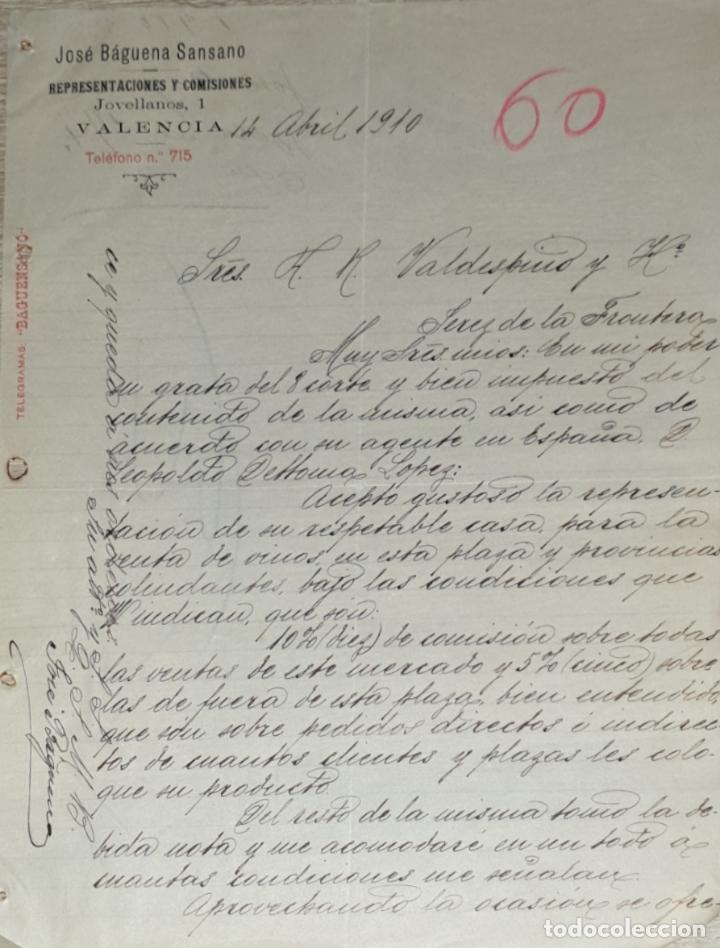 José Báguena Sansano
REPRESENTACIONES Y COMISIONES
Jovellanos, 1
VALENCIA 14 Abril 1910
Teléfono n.º 715
60
TELEGRAMAS: "BAGUENSANO"
Sres. A. R. Valdespino y Hº
Jerez de la Frontera
Muy Sres. mios: En mi poder
su grata del 8 corte y bien impuesto del
contenido de la misma, asi como de
acuerdo con su agente en España, D.
Leopoldo Lopez:
Acepto gustoso la represen-
tación de su respetable casa, para la
venta de vinos, en esta plaza y provincias
colindantes, bajo las condiciones que
indican, que son:
10% (diez) de comisión sobre todas
las ventas de este mercado y 5% (cinco) sobre
las de fuera de esta plaza, bien entendido
que son sobre pedidos directos é indirec-
tos de cuantos clientes y plazas les colo-
que su producto.
Del resto de la misma tomo la de-
bida nota y me acomodaré en un todo á
cuantas condiciones me señalan.
Aprovechando la ocasión se ofre-
ce y queda a sus ordenes
Su att.º y S. S.
L. S. M. B.
José Báguena
todocoleccion